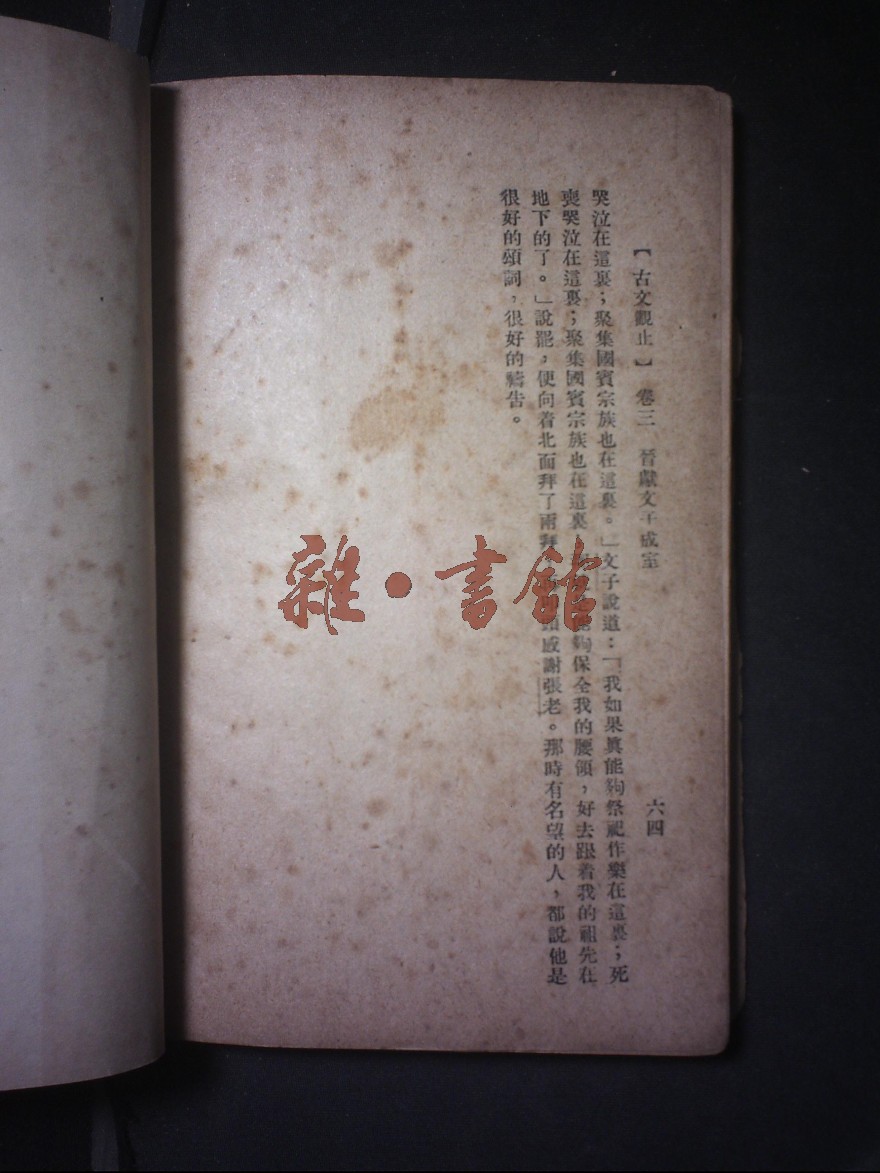 【古文觀止】 卷三 晉獻文子成室 六四
哭泣在這裏；聚集國賓宗族也在這裏。」文子說道：「我如果眞能夠祭祀作樂在這裏；死
喪哭泣在這裏；聚集國賓宗族也在這裏 能夠保全我的腰領，好去跟着我的祖先在
地下的了。」說罷，便向着北面拜了兩拜 感謝張老。那時有名望的人，都說他是
很好的頌詞，很好的禱告。
雜·書館